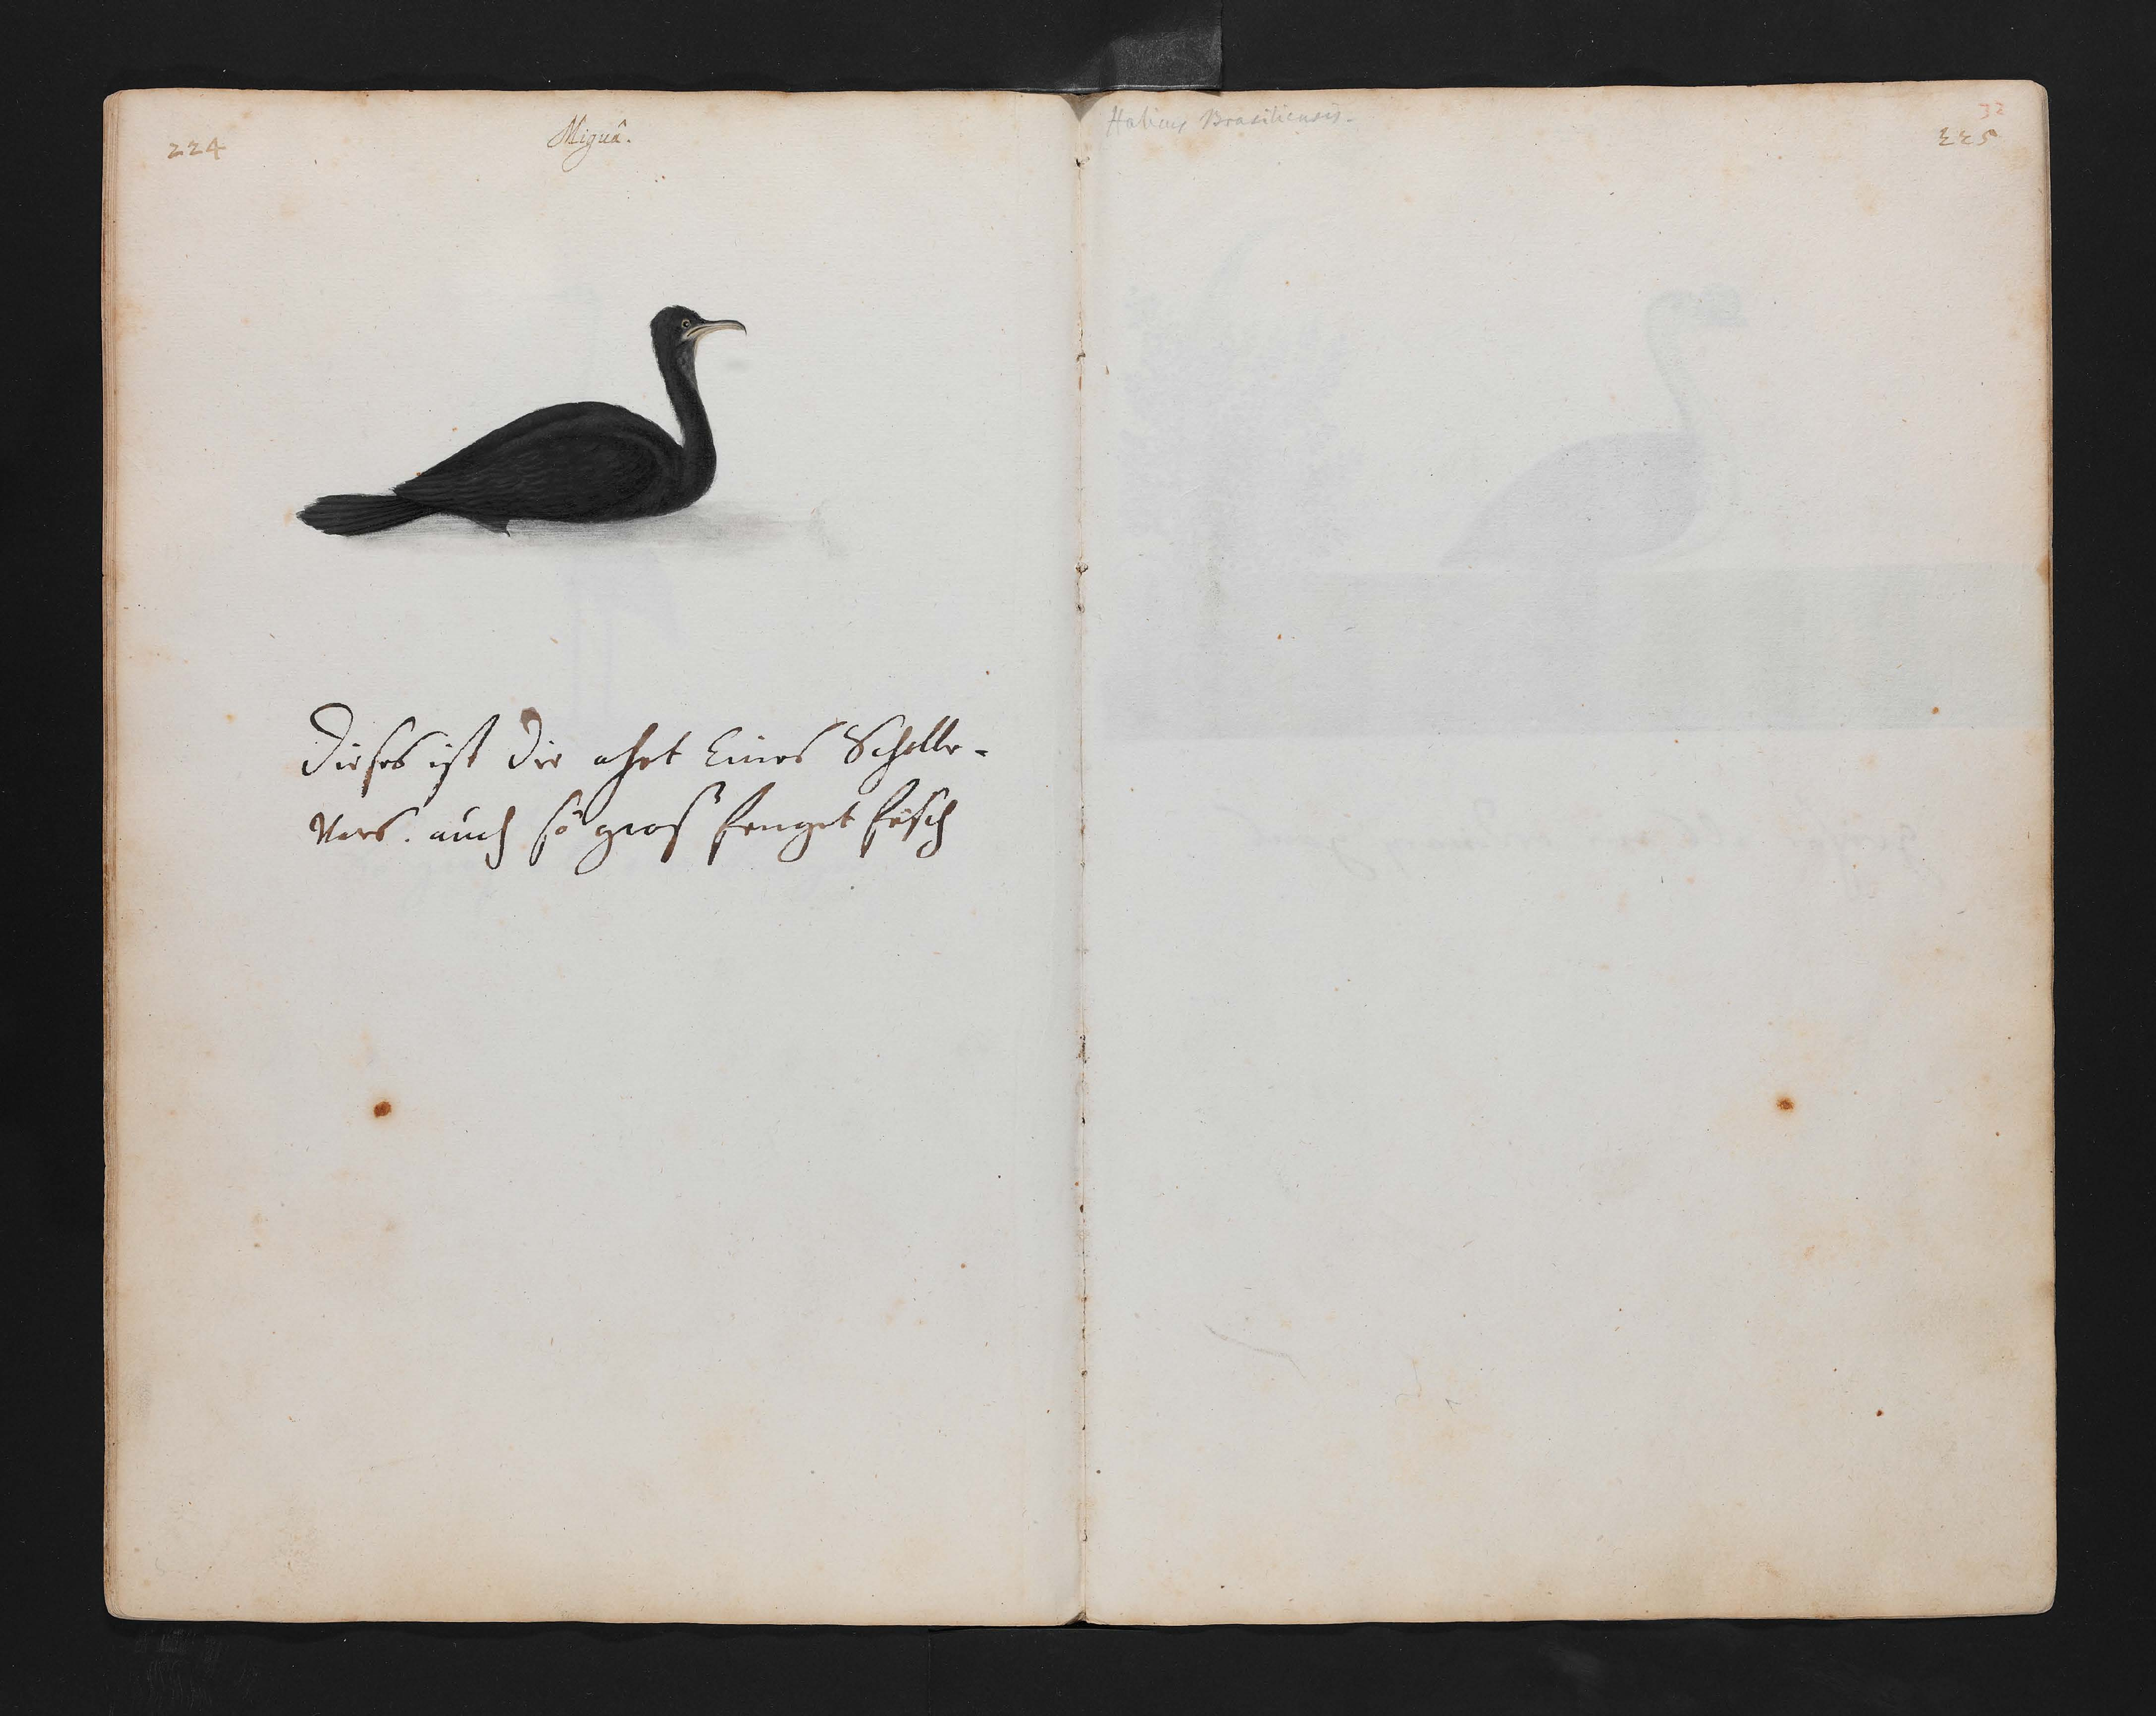 224
Miguâ.
Dieses ist die ahrt Eines Scholle-
vers. auch so gros fenget fisch
Brasiliensis.
32
225